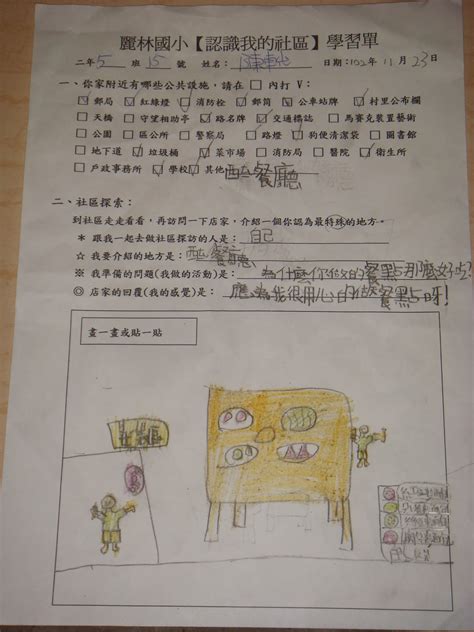 麗林國小【認識我的社區】學習單
二年 5 班 15 號 姓名： 陳 日期：102年 11月 23日
一、你家附近有哪些公共設施，請在□內打 V：
☑郵局 ☑紅綠燈 □消防栓 ☑郵筒 ☑公車站牌 ☑村里公布欄
□天橋 □守望相助亭 ☑路名牌 ☑交通標誌 □馬賽克裝置藝術
□公園 □區公所 □警察局 □路燈 ☑狗便清潔袋 □圖書館
□地下道 ☑垃圾桶 ☑菜市場 □消防局 □醫院 ☑衛生所
□戶政事務所 ☑學校 ☑其他 餐廳
二、社區探索：
到社區走走看看，再訪問一下店家，介紹一個你認為最特殊的地方。
＊ 跟我一起去做社區探訪的人是： 自己
☆ 我要介紹的地方是： 餐廳
※ 我準備的問題(我做的活動)是： 為什麼你做的餐點那麼好吃?
◎ 店家的回覆(我的感覺)是： 應為我很用心的做餐點呀!
畫一畫或貼一貼